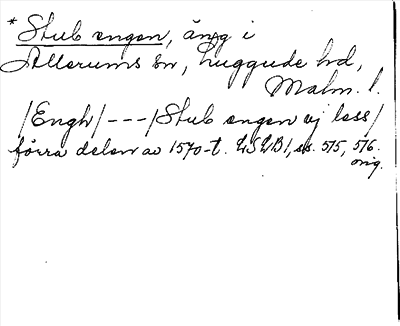 * Stub engen, äng i
Allerums sn, Luggude hd,
Malm. l.
/Engh/ --- /Stub engen vj less/
förra delen av 1570-t. LSLB1, ss. 575, 576.
orig.